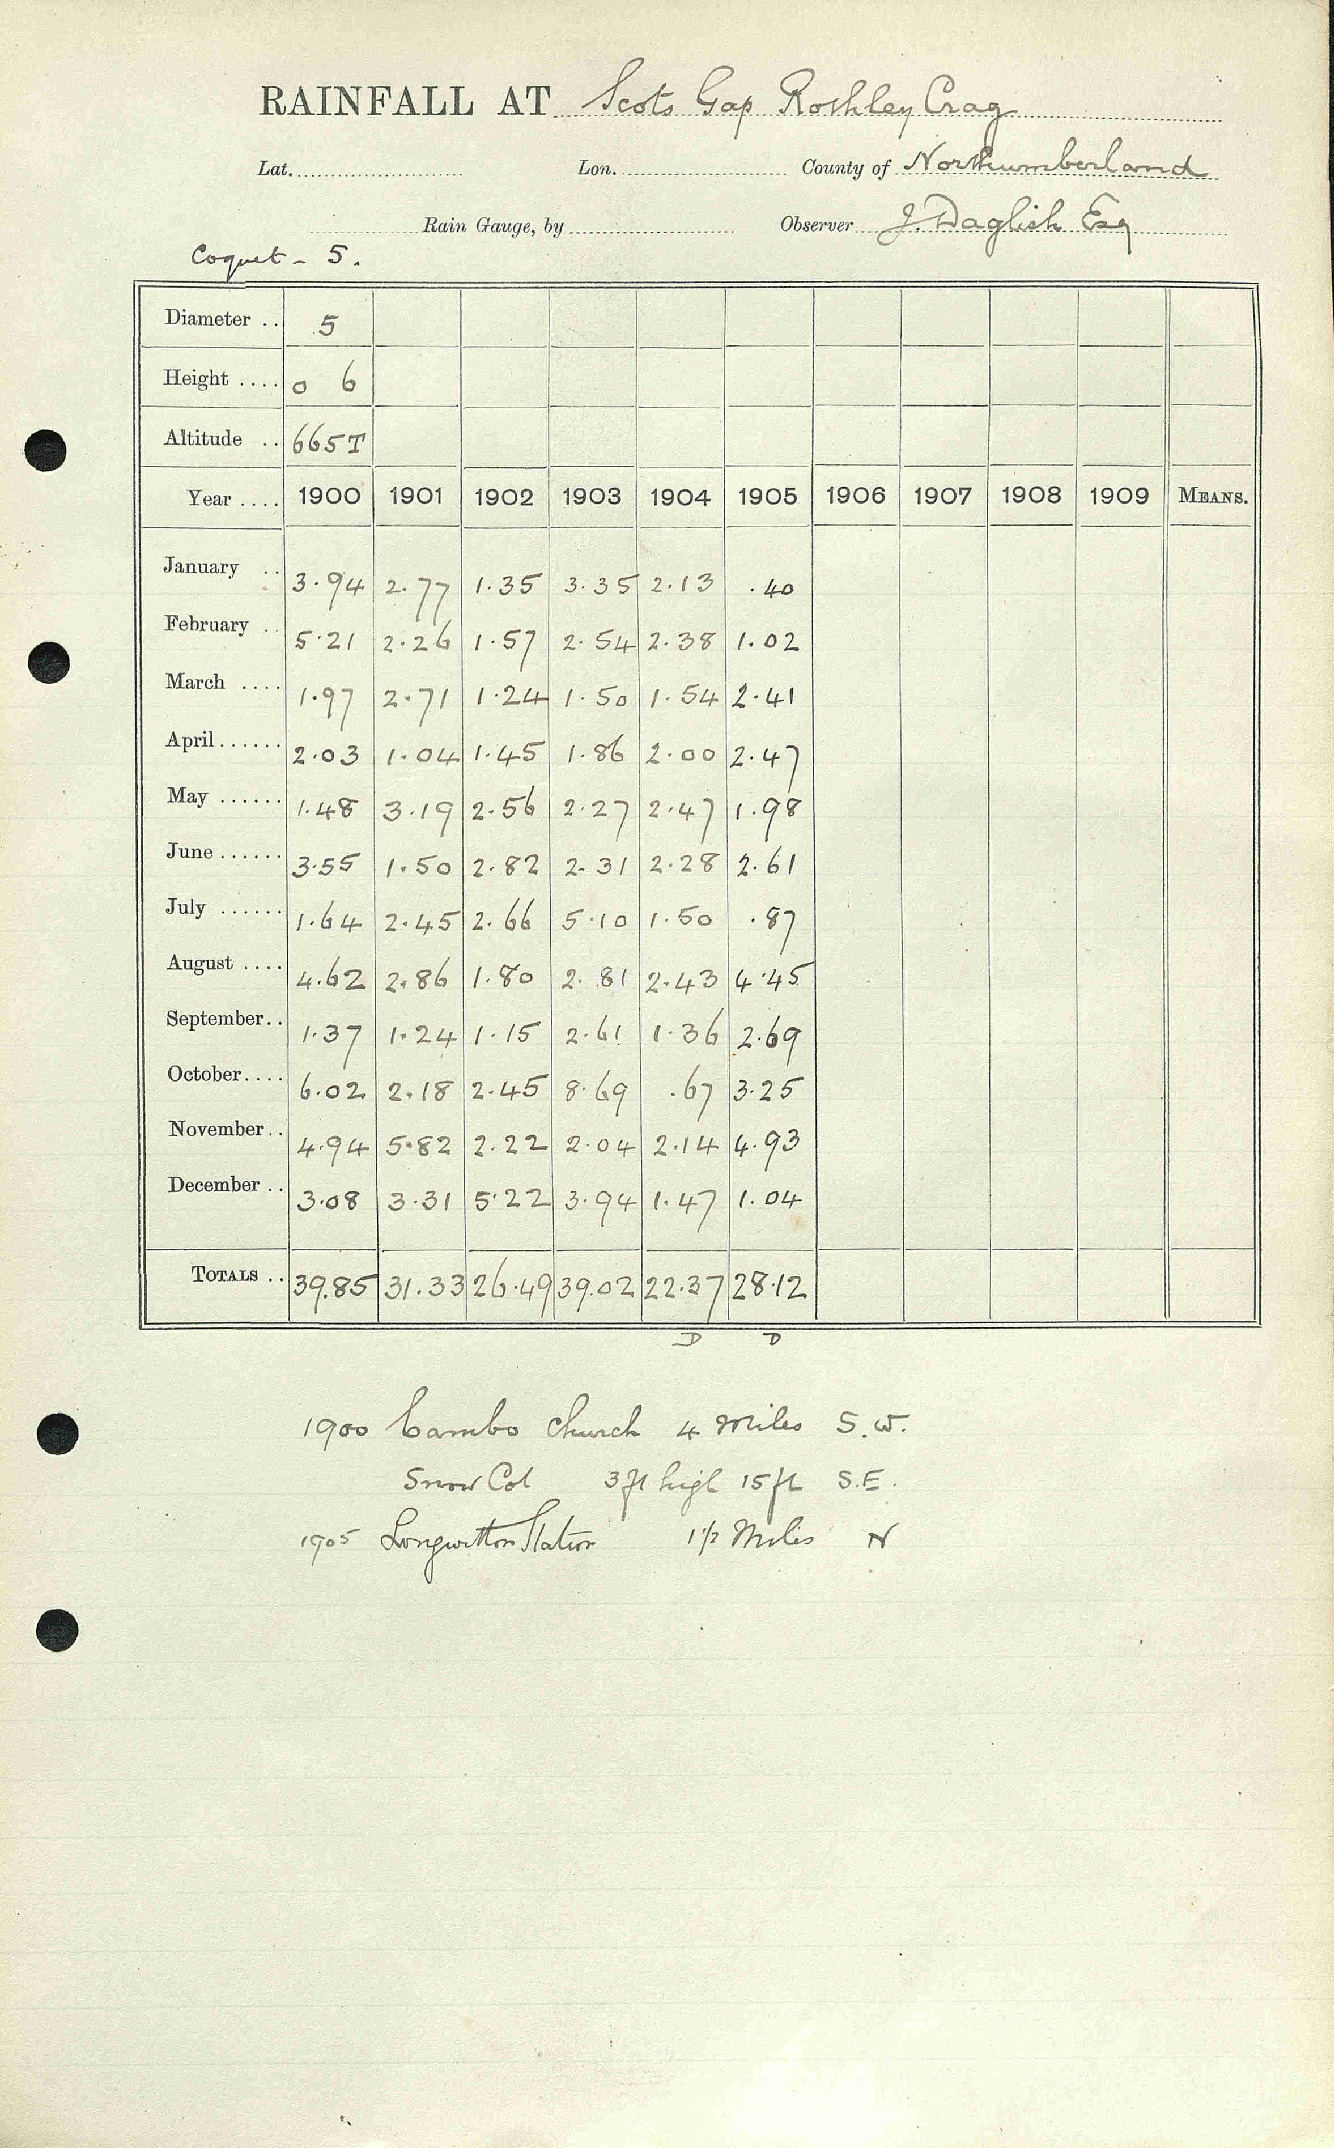 RAINFALL AT Scots Gap Rothley Crag
Lat. Lon. County of Northumberland
Rain Gauge, by Observer J. Daglish Esq
Coquet - 5.
Diameter .. 5
Height .... 0 6
Altitude .. 665T
Year .... 1900 1901 1902 1903 1904 1905 1906 1907 1908 1909 MEANS.
January .. 3.94 2.77 1.35 3.35 2.13 .40
February .. 5.21 2.26 1.57 2.54 2.38 1.02
March .... 1.97 2.71 1.24 1.50 1.54 2.41
April...... 2.03 1.04 1.45 1.86 2.00 2.47
May ...... 1.48 3.19 2.56 2.27 2.47 1.98
June...... 3.55 1.50 2.82 2.31 2.28 2.61
July ...... 1.64 2.45 2.66 5.10 1.50 .87
August .... 4.62 2.86 1.80 2.81 2.43 4.45
September.. 1.37 1.24 1.15 2.61 1.36 2.69
October.... 6.02 2.18 2.45 8.69 .67 3.25
November.. 4.94 5.82 2.22 2.04 2.14 4.93
December .. 3.08 3.31 5.22 3.94 1.47 1.04
TOTALS .. 39.85 31.33 26.49 39.02 22.37 28.12
D D
1900 Cambo Church 4 Miles S.W.
Snow Col 3 ft high 15 ft S.E.
1905 Longwitton Station 1 1/2 Miles N